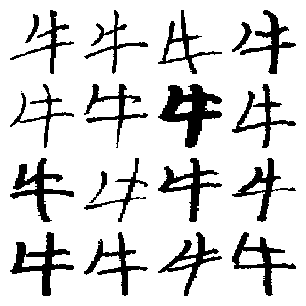 牛牛牛牛
牛牛牛牛
牛牛牛牛
牛牛牛牛